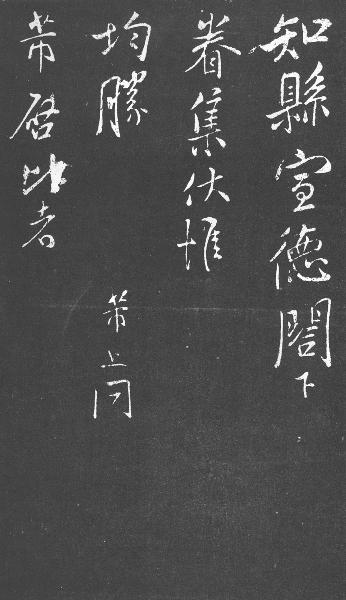 知縣宣德閤下
眷集伏惟
均勝
芾上問
芾啓比者